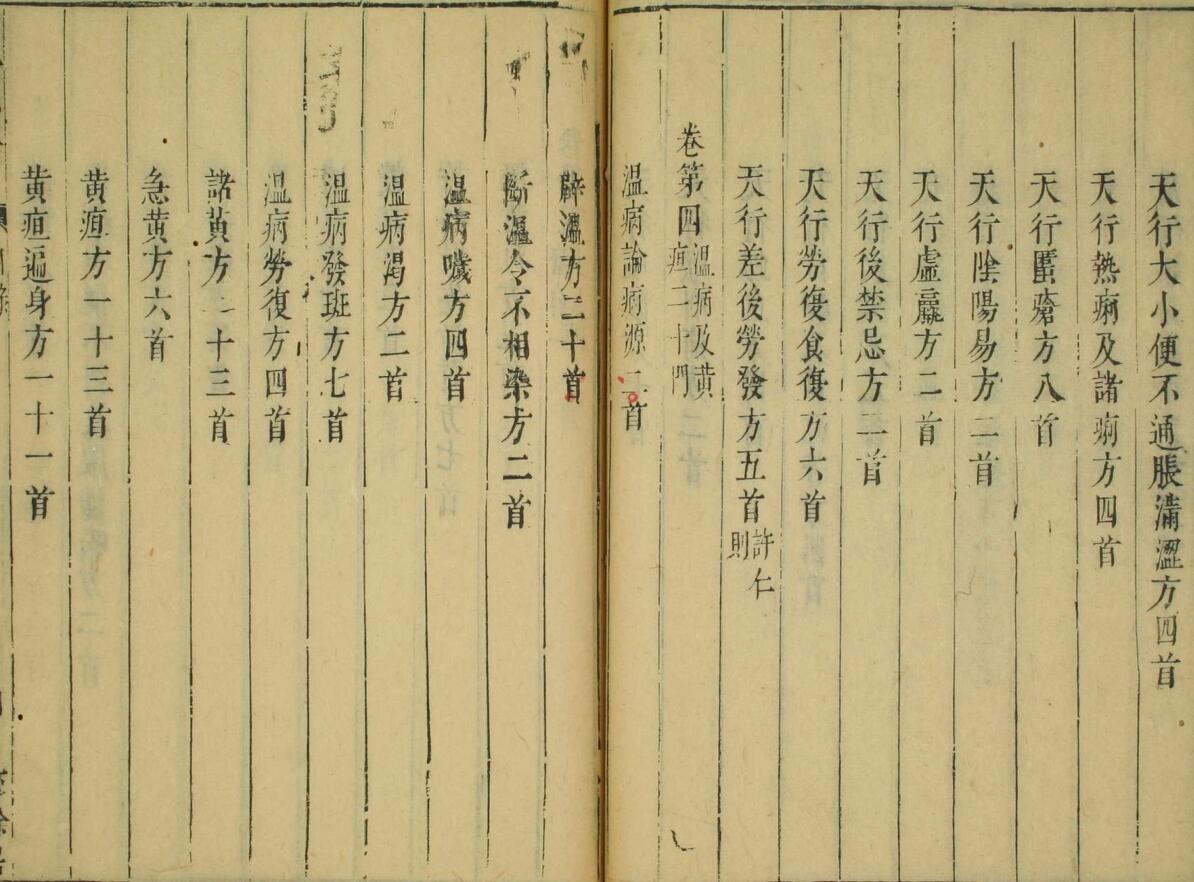 天行大小便不通脹滿澀方四首
天行熱痢及諸痢方四首
天行䘌瘡方八首
天行陰陽易方二首
天行虛羸方二首
天行後禁忌方二首
天行勞復食復方六首
天行差後勞發方五首許仁則
卷第四溫病及黃疸二十門
溫病論病源二首
辟溫方二十首
斷溫令不相染方二首
溫病噦方四首
溫病渴方二首
溫病發斑方七首
溫病勞復方四首
諸黃方二十三首
急黃方六首
黃疸方一十三首
黃疸遍身方一十一首